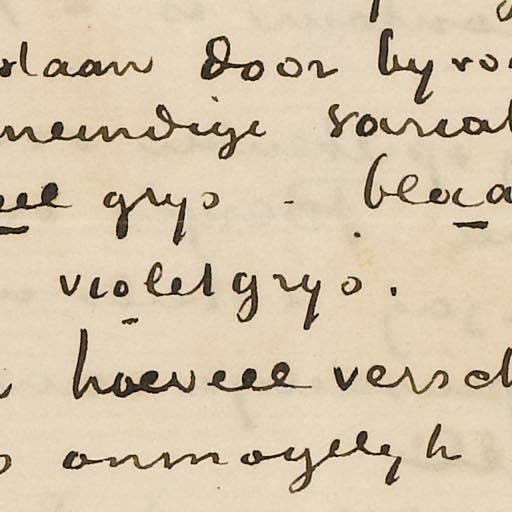 staan door byvo
neindige variat
eel grys - blaa
violetgrys.
hoeveel versch
onmogelyk